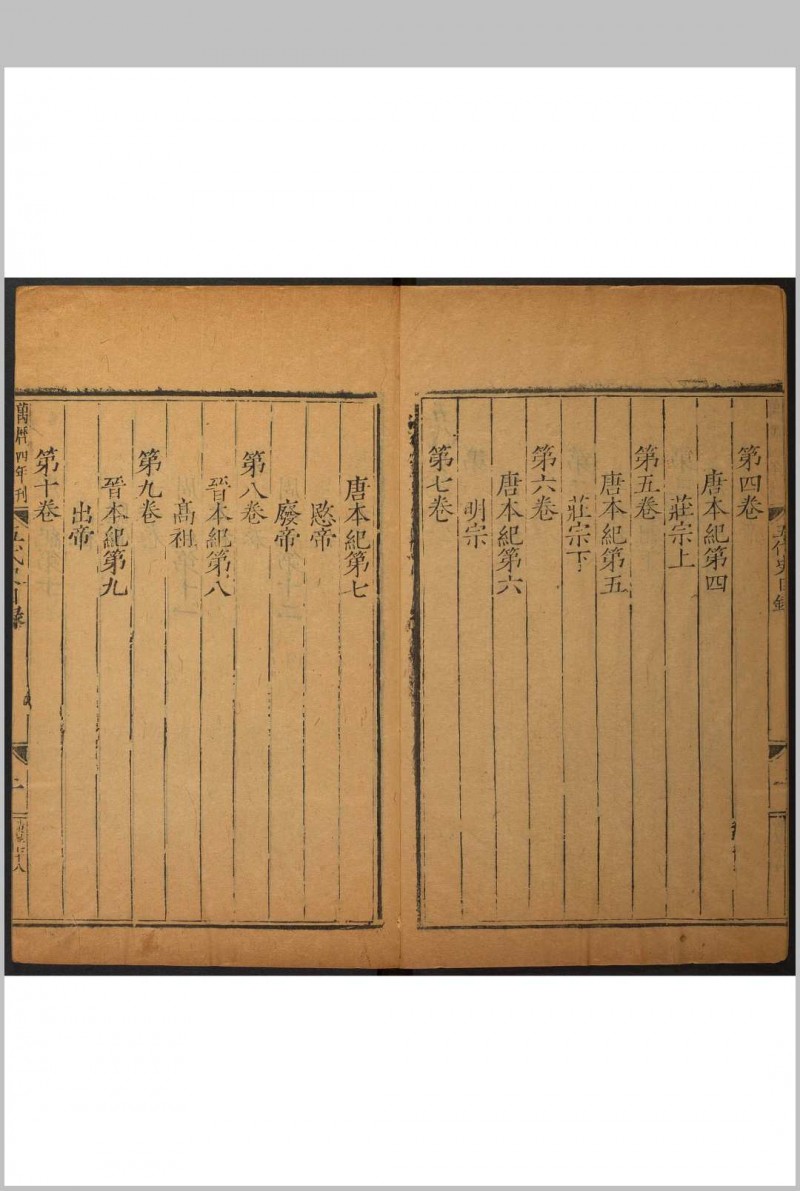 第四卷
唐本紀第四
莊宗上
第五卷
唐本紀第五
莊宗下
第六卷
唐本紀第六
明宗
第七卷
唐本紀第七
愍帝
廢帝
第八卷
晉本紀第八
高祖
第九卷
晉本紀第九
出帝
第十卷
萬曆四年刊
五代史目錄
二